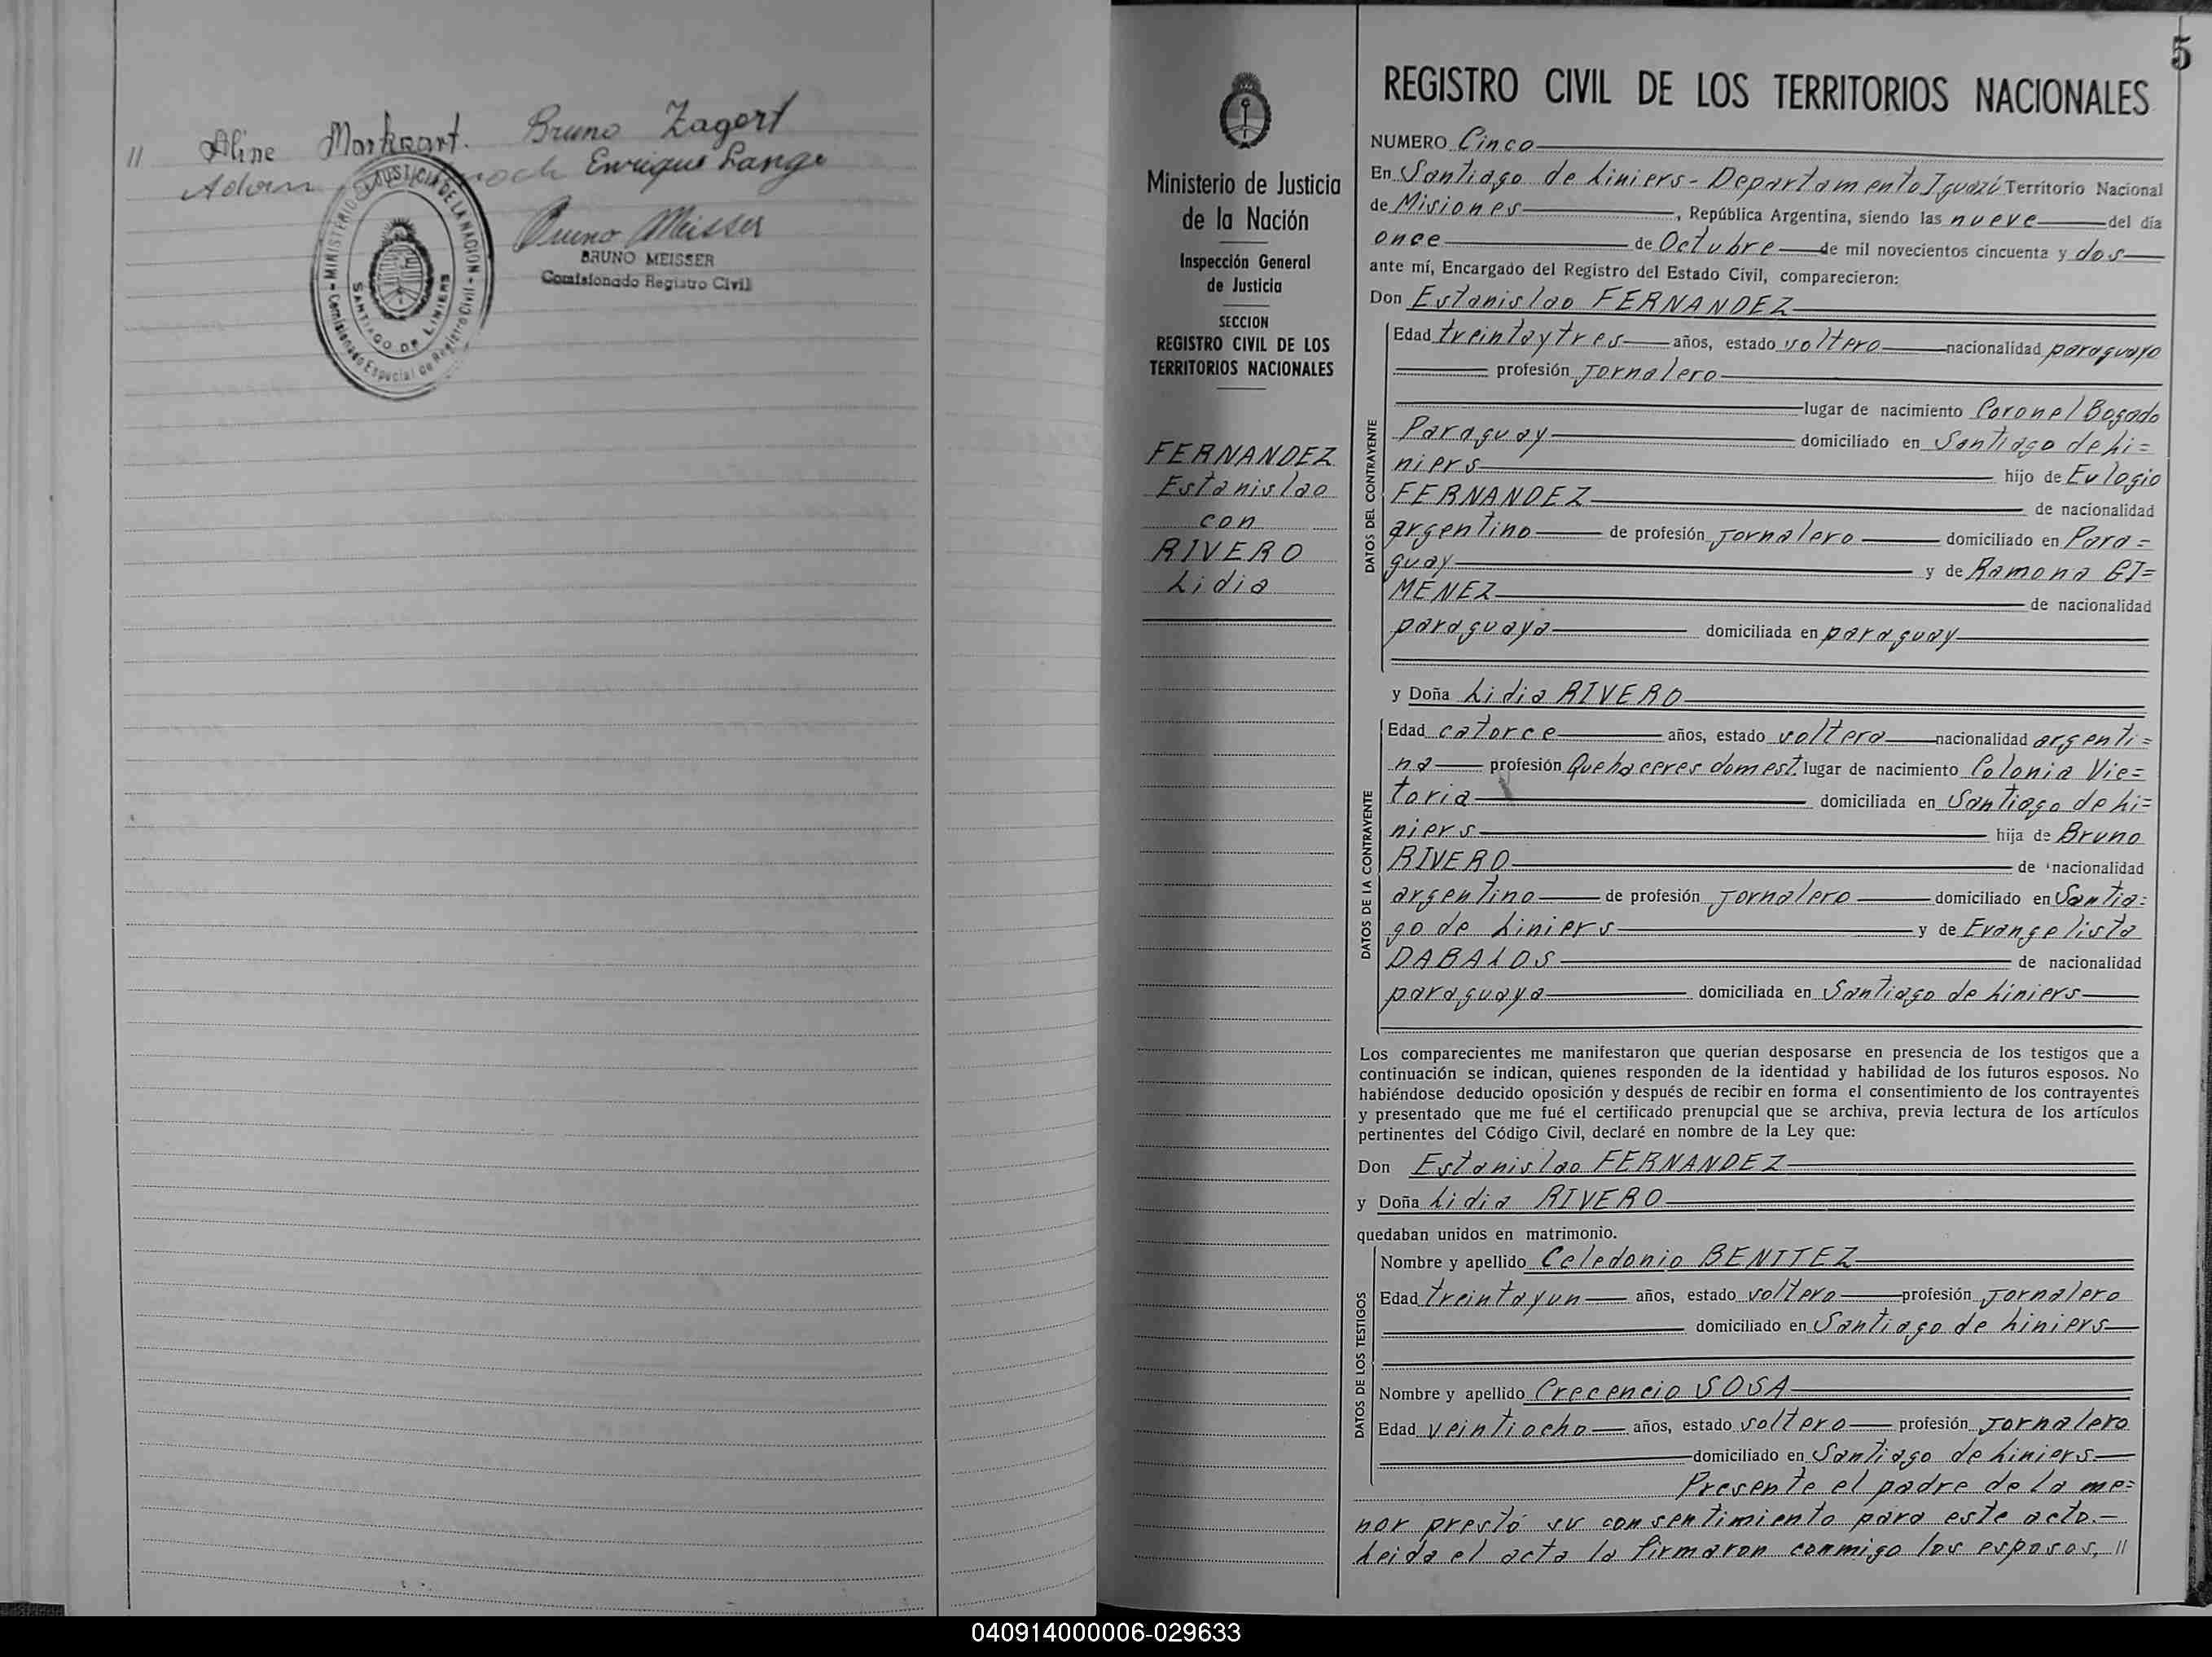 // Aline Markwart. Bruno Zagert
Adam Enrique Lange
Bruno Meisser
BRUNO MEISSER
Comisionado Registro Civil
MINISTERIO DE JUSTICIA DE LA NACION - Comisionado Especial de Registro Civil -
SANTIAGO DE LINIERS
5
REGISTRO CIVIL DE LOS TERRITORIOS NACIONALES
Ministerio de Justicia
de la Nación
Inspección General
de Justicia
SECCION
REGISTRO CIVIL DE LOS
TERRITORIOS NACIONALES
FERNANDEZ
Estanislao
con
RIVERO
Lidia
NUMERO Cinco
En Santiago de Liniers - Departamento Iguazú Territorio Nacional
de Misiones, República Argentina, siendo las nueve del día
once de Octubre de mil novecientos cincuenta y dos
ante mí, Encargado del Registro del Estado Civil, comparecieron:
Don Estanislao FERNANDEZ
DATOS DEL CONTRAYENTE
Edad treintaytres años, estado soltero nacionalidad paraguayo
profesión Jornalero
lugar de nacimiento Coronel Bogado
Paraguay domiciliado en Santiago de Li=
niers hijo de Eulogio
FERNANDEZ de nacionalidad
argentino de profesión Jornalero domiciliado en Para=
guay y de Ramona GI=
MENEZ de nacionalidad
paraguaya domiciliada en paraguay
y Doña Lidia RIVERO
DATOS DE LA CONTRAYENTE
Edad catorce años, estado soltera nacionalidad argenti=
na profesión Quehaceres domest. lugar de nacimiento Colonia Vic=
toria domiciliada en Santiago de Li=
niers hija de Bruno
RIVERO de nacionalidad
argentino de profesión Jornalero domiciliado en Santia=
go de Liniers y de Evangelista
DABALOS de nacionalidad
paraguaya domiciliada en Santiago de Liniers
Los comparecientes me manifestaron que querían desposarse en presencia de los testigos que a
continuación se indican, quienes responden de la identidad y habilidad de los futuros esposos. No
habiéndose deducido oposición y después de recibir en forma el consentimiento de los contrayentes
y presentado que me fué el certificado prenupcial que se archiva, previa lectura de los artículos
pertinentes del Código Civil, declaré en nombre de la Ley que:
Don Estanislao FERNANDEZ
y Doña Lidia RIVERO
quedaban unidos en matrimonio.
DATOS DE LOS TESTIGOS
Nombre y apellido Celedonio BENITEZ
Edad treintayun años, estado soltero profesión Jornalero
domiciliado en Santiago de Liniers
Nombre y apellido Crecencio SOSA
Edad veintiocho años, estado soltero profesión Jornalero
domiciliado en Santiago de Liniers
Presente el padre de la me=
nor prestó su consentimiento para este acto.-
Leida el acta la firmaron conmigo los esposos, //
040914000006-029633